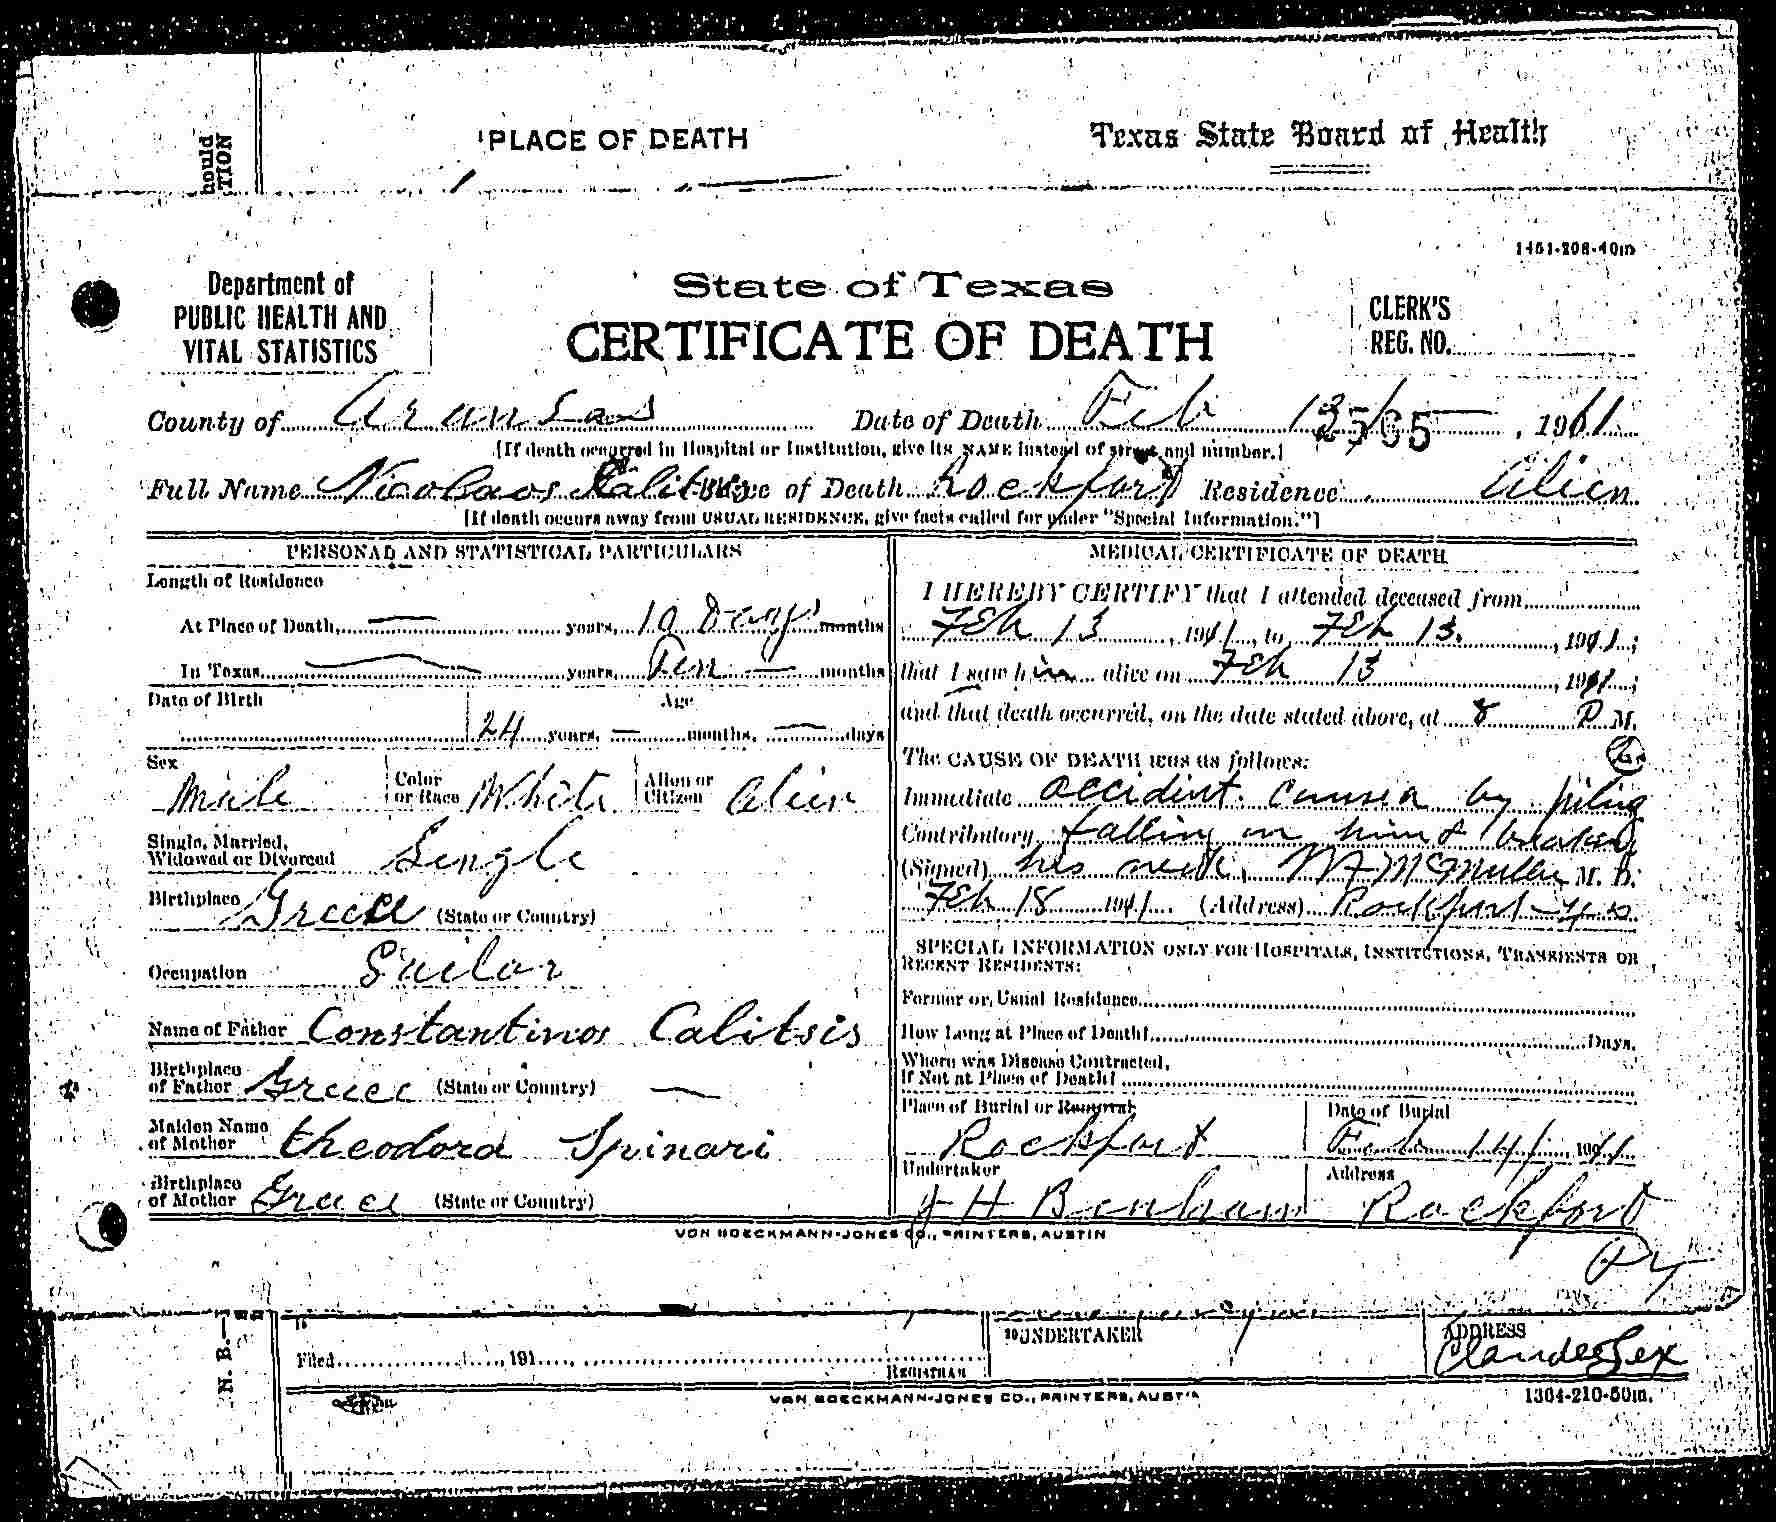 hould
TION
¹PLACE OF DEATH
Texas State Board of Health
1451-208-40m
Department of
PUBLIC HEALTH AND
VITAL STATISTICS
State of Texas
CERTIFICATE OF DEATH
CLERK'S
REG. NO.
County of Aransas Date of Death Feb 13 1911
[If death occurred in Hospital or Institution, give its NAME instead of street and number.]
Full Name Nicolaos Calitsis Place of Death Rockport Residence Alien
[If death occurs away from USUAL RESIDENCE, give facts called for under "Special Information."]
PERSONAL AND STATISTICAL PARTICULARS
Length of Residence
At Place of Death, — years, 10 Days months
In Texas — years, Ten — months
Date of Birth Age
24 years, — months, — days
Sex Male Color or Race White Alien or Citizen Alien
Single, Married,
Widowed or Divorced Single
Birthplace Greece (State or Country)
Occupation Sailor
Name of Father Constantinos Calitsis
Birthplace
of Father Greece (State or Country) —
Maiden Name
of Mother theodora Spinari
Birthplace
of Mother Greece (State or Country)
MEDICAL CERTIFICATE OF DEATH
I HEREBY CERTIFY that I attended deceased from
Feb 13, 1911, to Feb 13, 1911;
that I saw him alive on Feb 13, 1911;
and that death occurred, on the date stated above, at 8 P M.
The CAUSE OF DEATH was as follows:
Immediate accident caused by piling
Contributory falling on him & breaking
(Signed) his neck, McMullen M. D.
Feb 18 1911 (Address) Rockport
SPECIAL INFORMATION ONLY FOR HOSPITALS, INSTITUTIONS, TRANSIENTS OR
RECENT RESIDENTS:
Former or Usual Residence
How Long at Place of Death? Days.
Where was Disease Contracted,
If Not at Place of Death?
Place of Burial or Removal Date of Burial
Rockport Feb 14 1911
Undertaker Address
H Benham Rockport
VON BOECKMANN-JONES CO., PRINTERS, AUSTIN
N. B.—
Filed 191
REGISTRAR
²⁰UNDERTAKER
ADDRESS
VON BOECKMANN-JONES CO., PRINTERS, AUSTIN
1304-210-50m.